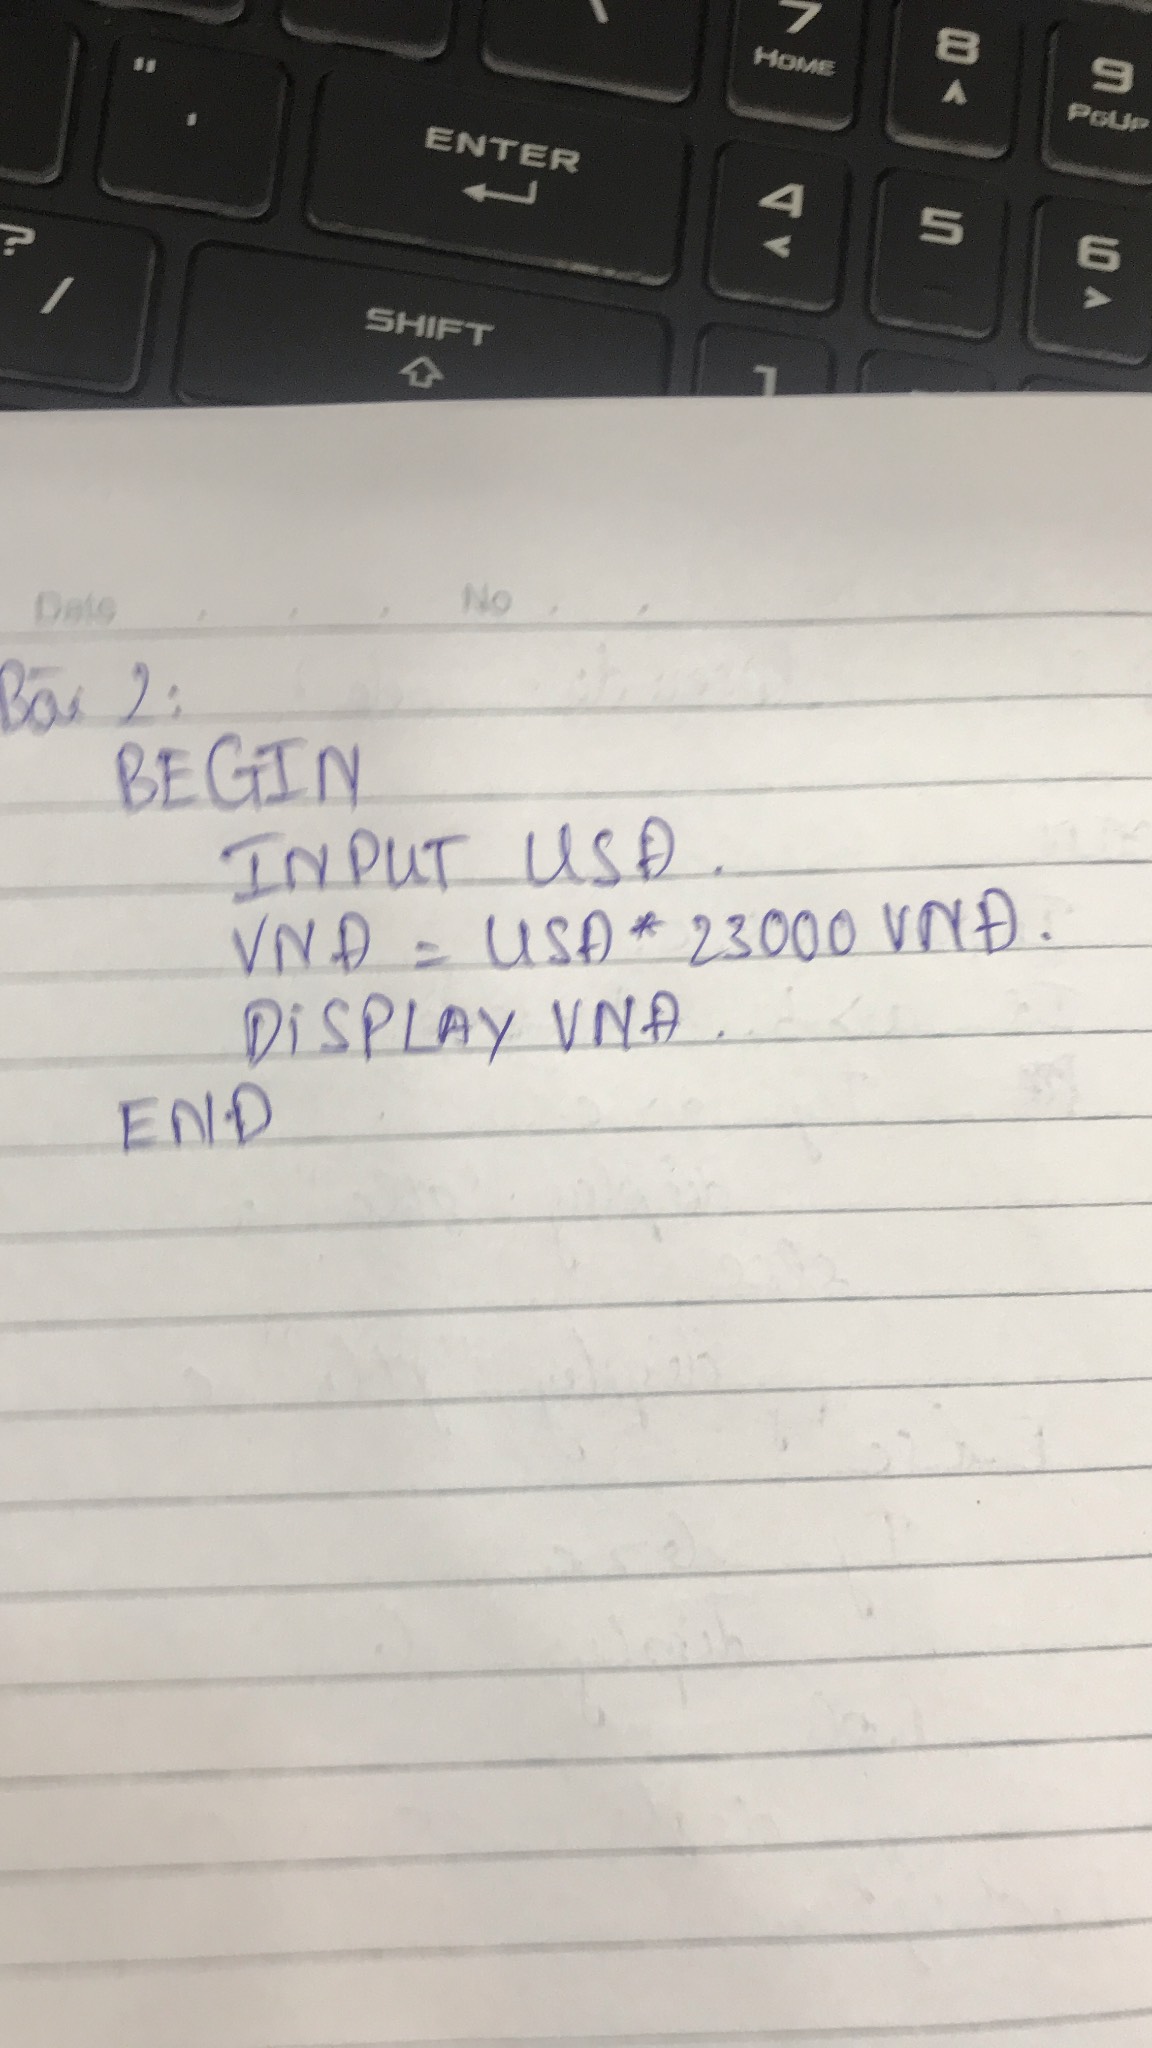 "
'
ENTER
7
HOME
8
9
PGUP
4
5
6
?
/
SHIFT
1
Date
No
Bài 2:
BEGIN
INPUT USĐ.
VNĐ = USĐ * 23000 VNĐ.
DISPLAY VNĐ.
END